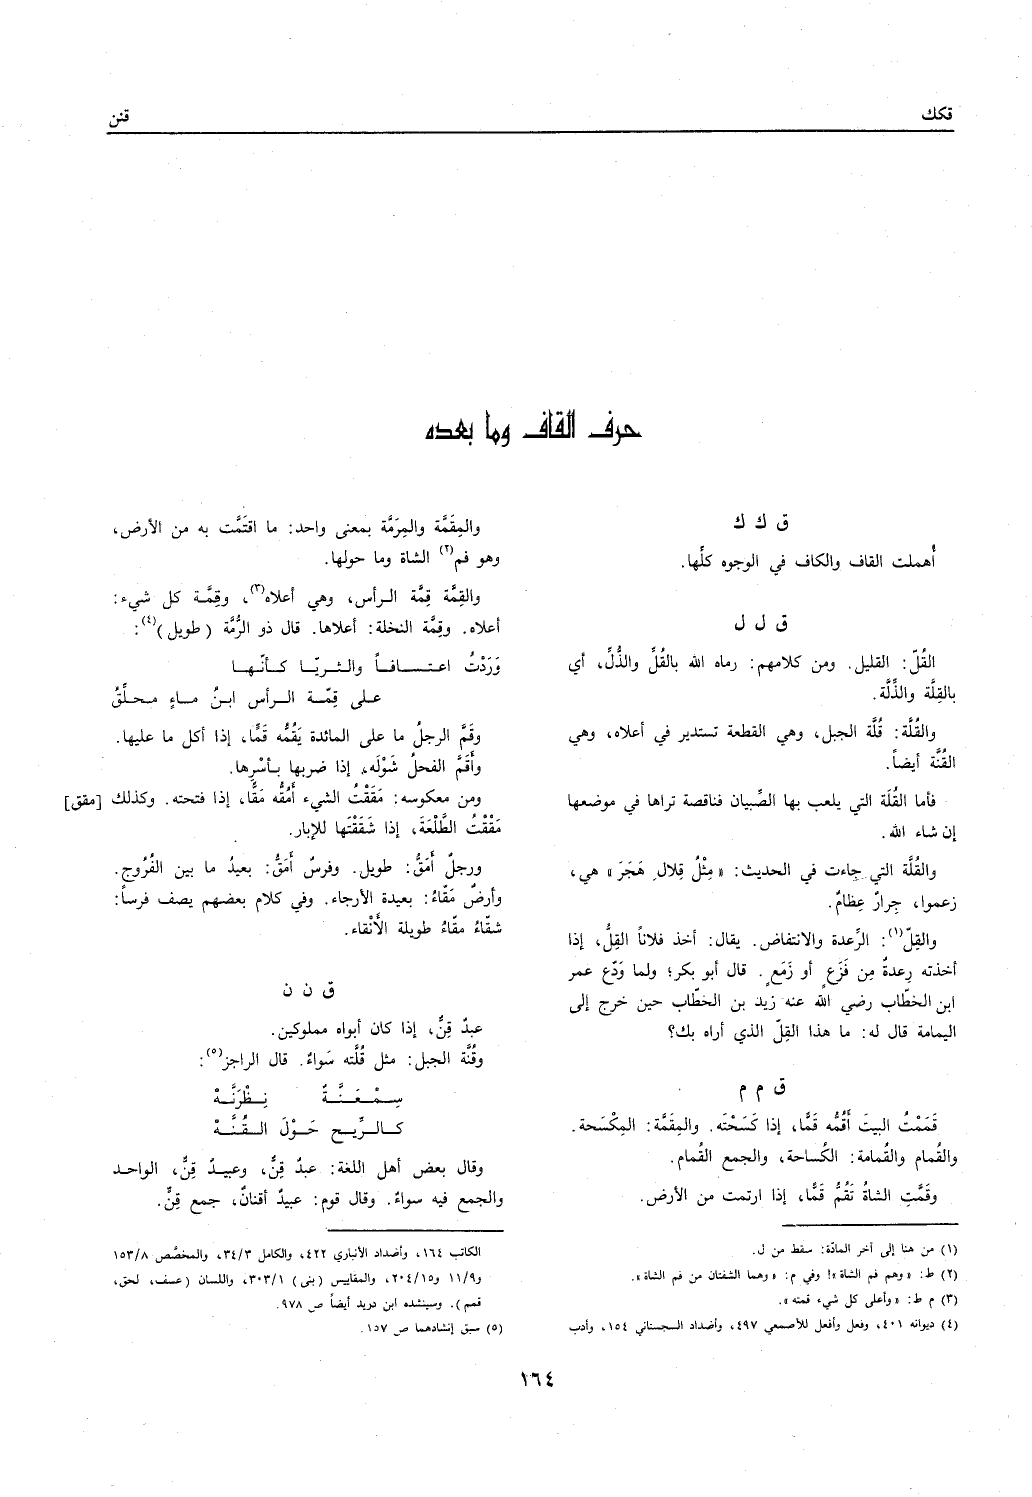 قكك
قنن
حرف القاف وما بعده
ق ك ك
أُهملت القاف والكاف في الوجوه كلِّها.
ق ل ل
القُلّ: القليل. ومن كلامهم: رماه الله بالقُلِّ والذُّلِّ، أي
بالقِلَّة والذِّلَّة.
والقُلَّة: قُلَّة الجبل، وهي القطعة تستدير في أعلاه، وهي
القُنَّة أيضاً.
فأما القُلَة التي يلعب بها الصِّبيان فناقصة تراها في موضعها
إن شاء الله.
والقُلَّة التي جاءت في الحديث: «مِثْلُ قِلالِ هَجَرَ» هي،
زعموا، جِرارٌ عِظامٌ.
والقِلّ(١): الرِّعدة والانتفاض. يقال: أخذ فلاناً القِلُّ، إذا
أخذته رِعدةٌ مِن فَزَعٍ أو زَمَعٍ. قال أبو بكر؛ ولما وَدّع عمر
ابن الخطّاب رضي الله عنه زيد بن الخطّاب حين خرج إلى
اليمامة قال له: ما هذا القِلّ الذي أراه بك؟
ق م م
قَمَمْتُ البيتَ أَقُمُّه قَمًّا، إذا كَسَحْتَه. والمِقَمَّة: المِكْسَحة.
والقُمام والقُمامة: الكُساحة، والجمع القُمام.
وقَمَّتِ الشاةُ تَقُمُّ قَمًّا، إذا ارتمت من الأرض.
والمِقَمَّة والمِرَمَّة بمعنى واحد: ما اقتَمَّت به من الأرض،
وهو فم(٢) الشاة وما حولها.
والقِمَّة قِمَّة الرأس، وهي أعلاه(٣)، وقِمَّة كل شيء:
أعلاه. وقِمَّة النخلة: أعلاها. قال ذو الرُّمَّة (طويل)(٤):
وَرَدْتُ اعتسافاً والثريّا كأنّها
على قِمّة الرأس ابنُ ماءٍ محلِّقُ
وقَمَّ الرجلُ ما على المائدة يَقُمُّه قَمًّا، إذا أكل ما عليها.
وأَقَمَّ الفحلُ شَوْلَه، إذا ضربها بأسْرِها.
ومن معكوسه: مَقَقْتُ الشيء أَمُقُّه مَقًّا، إذا فتحته. وكذلك [مقق]
مَقَقْتُ الطَّلْعَةَ، إذا شَقَقْتَها للإبار.
ورجلٌ أَمَقُّ: طويل. وفرسٌ أَمَقُّ: بعيدُ ما بين الفُرُوج.
وأرضٌ مَقّاءُ: بعيدة الأرجاء. وفي كلام بعضهم يصف فرساً:
شقّاءُ مقّاءُ طويلة الأَنْقاء.
ق ن ن
عبدٌ قِنٌّ، إذا كان أبواه مملوكين.
وقُنَّة الجبل: مثل قُلَّته سَواءٌ. قال الراجز(٥):
سِمْعَنَّةً نِظْرَنَّهْ
كالرِّيح حَوْلَ القُنَّهْ
وقال بعض أهل اللغة: عبدٌ قِنٌّ، وعبيدٌ قِنٌّ، الواحد
والجمع فيه سواءٌ. وقال قوم: عبيدٌ أقنانٌ، جمع قِنٍّ.
(١) من هنا إلى آخر المادّة: سقط من ل.
(٢) ط: «وهم فم الشاة»! وفي م: «وهما الشفتان من فم الشاة».
(٣) م ط: «وأعلى كل شيء قمته».
(٤) ديوانه ٤٠١، وفعل وأفعل للأصمعي ٤٩٧، وأضداد السجستاني ١٥٤، وأدب
الكاتب ١٦٤، وأضداد الأنباري ٤٢٢، والكامل ٣٤/٣، والمخصَّص ١٥٣/٨
و١١/٩ و٢٠٤/١٥، والمقاييس (بنى) ٣٠٣/١، واللسان (عسف، لحق،
قمم). وسينشده ابن دريد أيضاً ص ٩٧٨.
(٥) سبق إنشادهما ص ١٥٧.
١٦٤